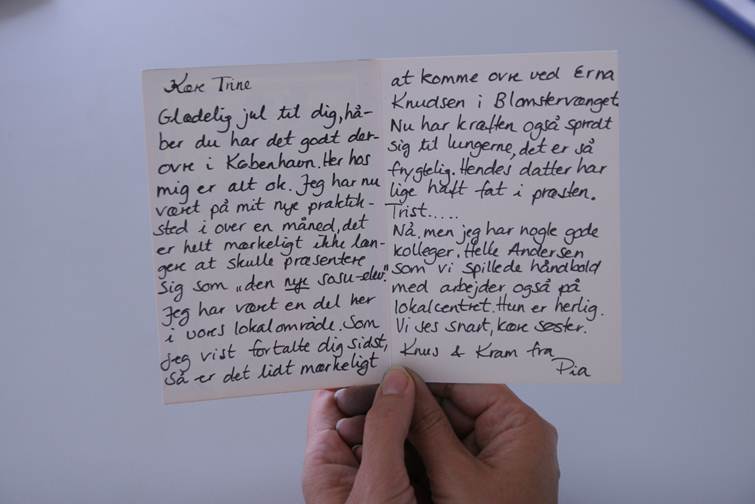 Kære Trine
Glædelig jul til dig, hå-
ber du har det godt der-
ovre i København. Her hos
mig er alt ok. Jeg har nu
været på mit nye praktik-
sted i over en måned, det
er helt mærkeligt ikke læn-
gere at skulle præsentere
sig som "den nye sosu-elev."
Jeg har været en del her
i vores lokalområde. Som
jeg vist fortalte dig sidst,
så er det lidt mærkeligt
at komme ovre ved Erna
Knudsen i Blomstervænget.
Nu har kræften også spredt
sig til lungerne, det er så
frygtelig. Hendes datter har
lige haft fat i præsten.
Trist.....
Nå, men jeg har nogle gode
kolleger. Helle Andersen
som vi spillede håndbold
med arbejder også på
lokalcentret. Hun er herlig.
Vi ses snart, kære søster.
Knus & Kram fra
Pia